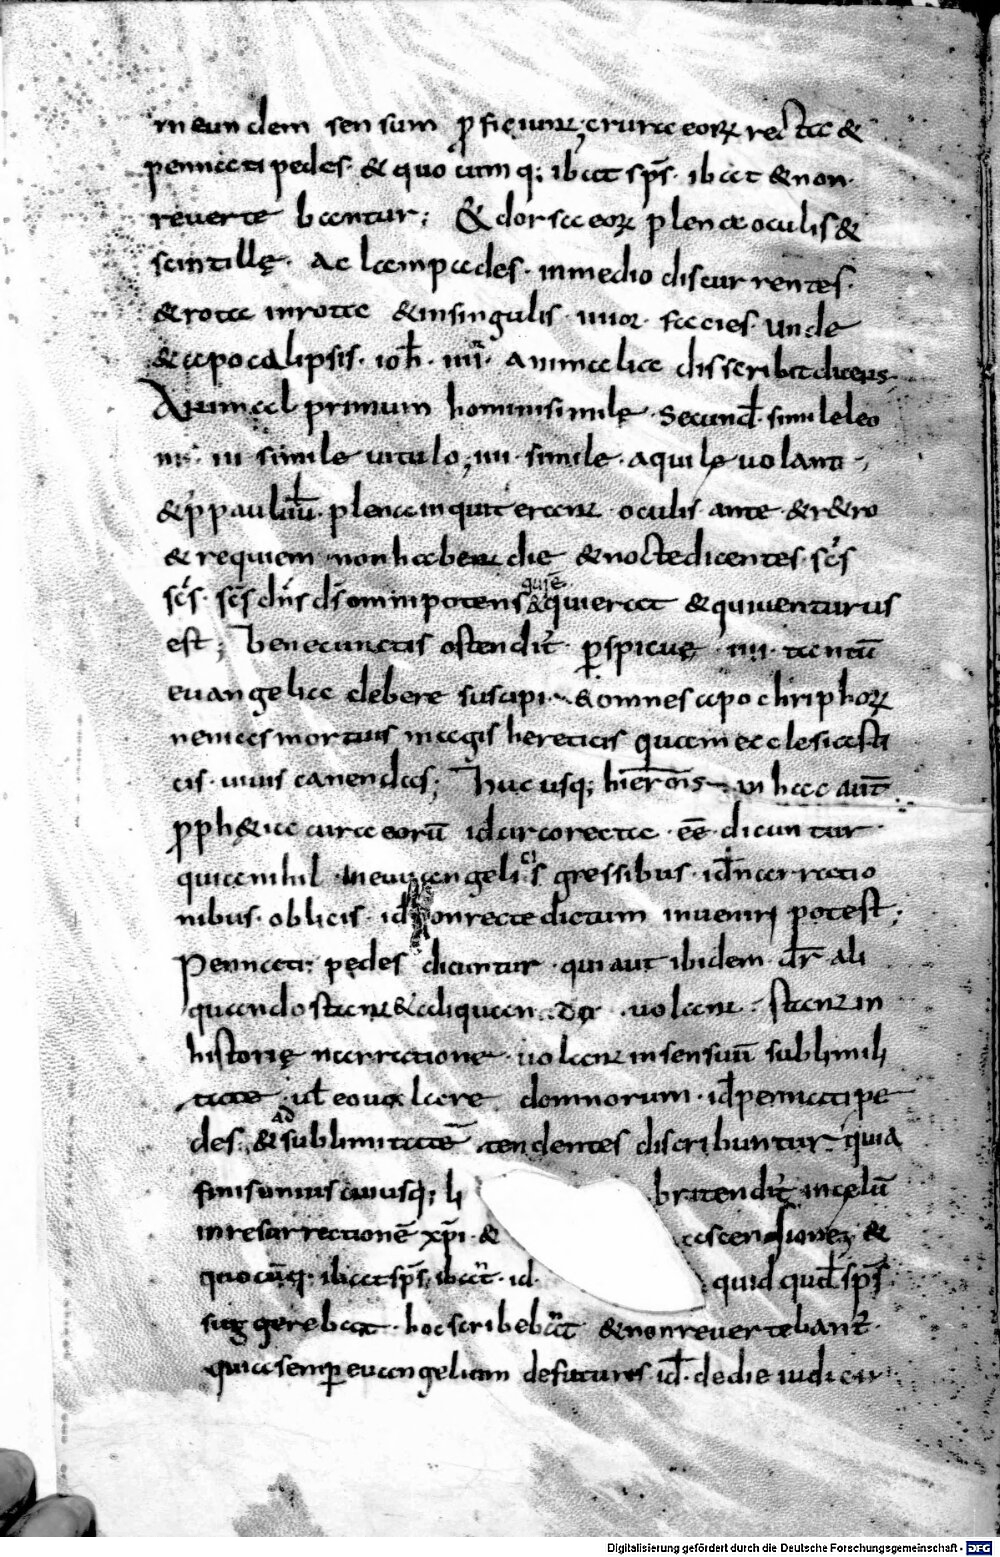 in eundem sensum ꝓficiunt, crura eoꝝ recta &
pennati pedes · & quocumq; ibat sp̄s · ibat & non ·
reuerte bantur ; & dorsa eoꝝ plena oculis &
scintillę · ac lampades · inmedio discurrentes ·
& rota inrota & insingulis · iiiior · facies unde
& apocalipsis · ioh̄ · iiii · animalia disscribit dicens ;
Animal primum hominisimile · Secund̄ · simileleo
ni · iii simile uitulo, iiii · simile · aquile uolanti ;
& p paulūl · plena inquit erant · oculis · ante & r&ro
& requiem non habent die & nocte dicentes · sc̄s
sc̄s · sc̄s dn̄s ds̄ omnipotens & qui ē & qui erat & quiuenturus
est ; hęnecunctis ostendit · ꝑspicuę · iiii · tantū
euangelia debere suscipi · & omnes apochriphoꝝ
nenias mortuis magis hereticis quam ecclesiasti
cis · uiuis canendas ; huc usq; hieron̄s · in hac aūt
ꝓph&ia cura eorū idcirco recta · ēē · dicuntur ·
quia nihil · in euangelicis gressibus · id̄ narratio
nibus · obliqis · id̄ non recte dictum inueniri potest ;
Pennati · pedes dicuntur · qui aut ibidem · dr̄ ali
quando stant & aliquando · uolant · stant in
historię narratione · uolant in sensuū sublimili
tate · ut̄ eo uolare domnorum · id̄ pennati pe
des · & ad sublimitatē tendentes discribuntur · quia
finis unius cuiusq; li bri tendit in cęlū
in resurrectionē xp̄i · & ascensionē, &
quocūq · ibat sp̄s, ibat · id quid qud̄ sp̄s
suggerebat · hoc scribebat & nonreuertebant̄ ·
quia semꝑ euangelium defuturis · id̄ · dedie iudicii
Digitalisierung gefördert durch die Deutsche Forschungsgemeinschaft - DFG